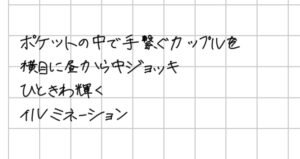 ポケットの中で手繋ぐカップルを
横目に昼から中ジョッキ
ひときわ輝く
イルミネーション